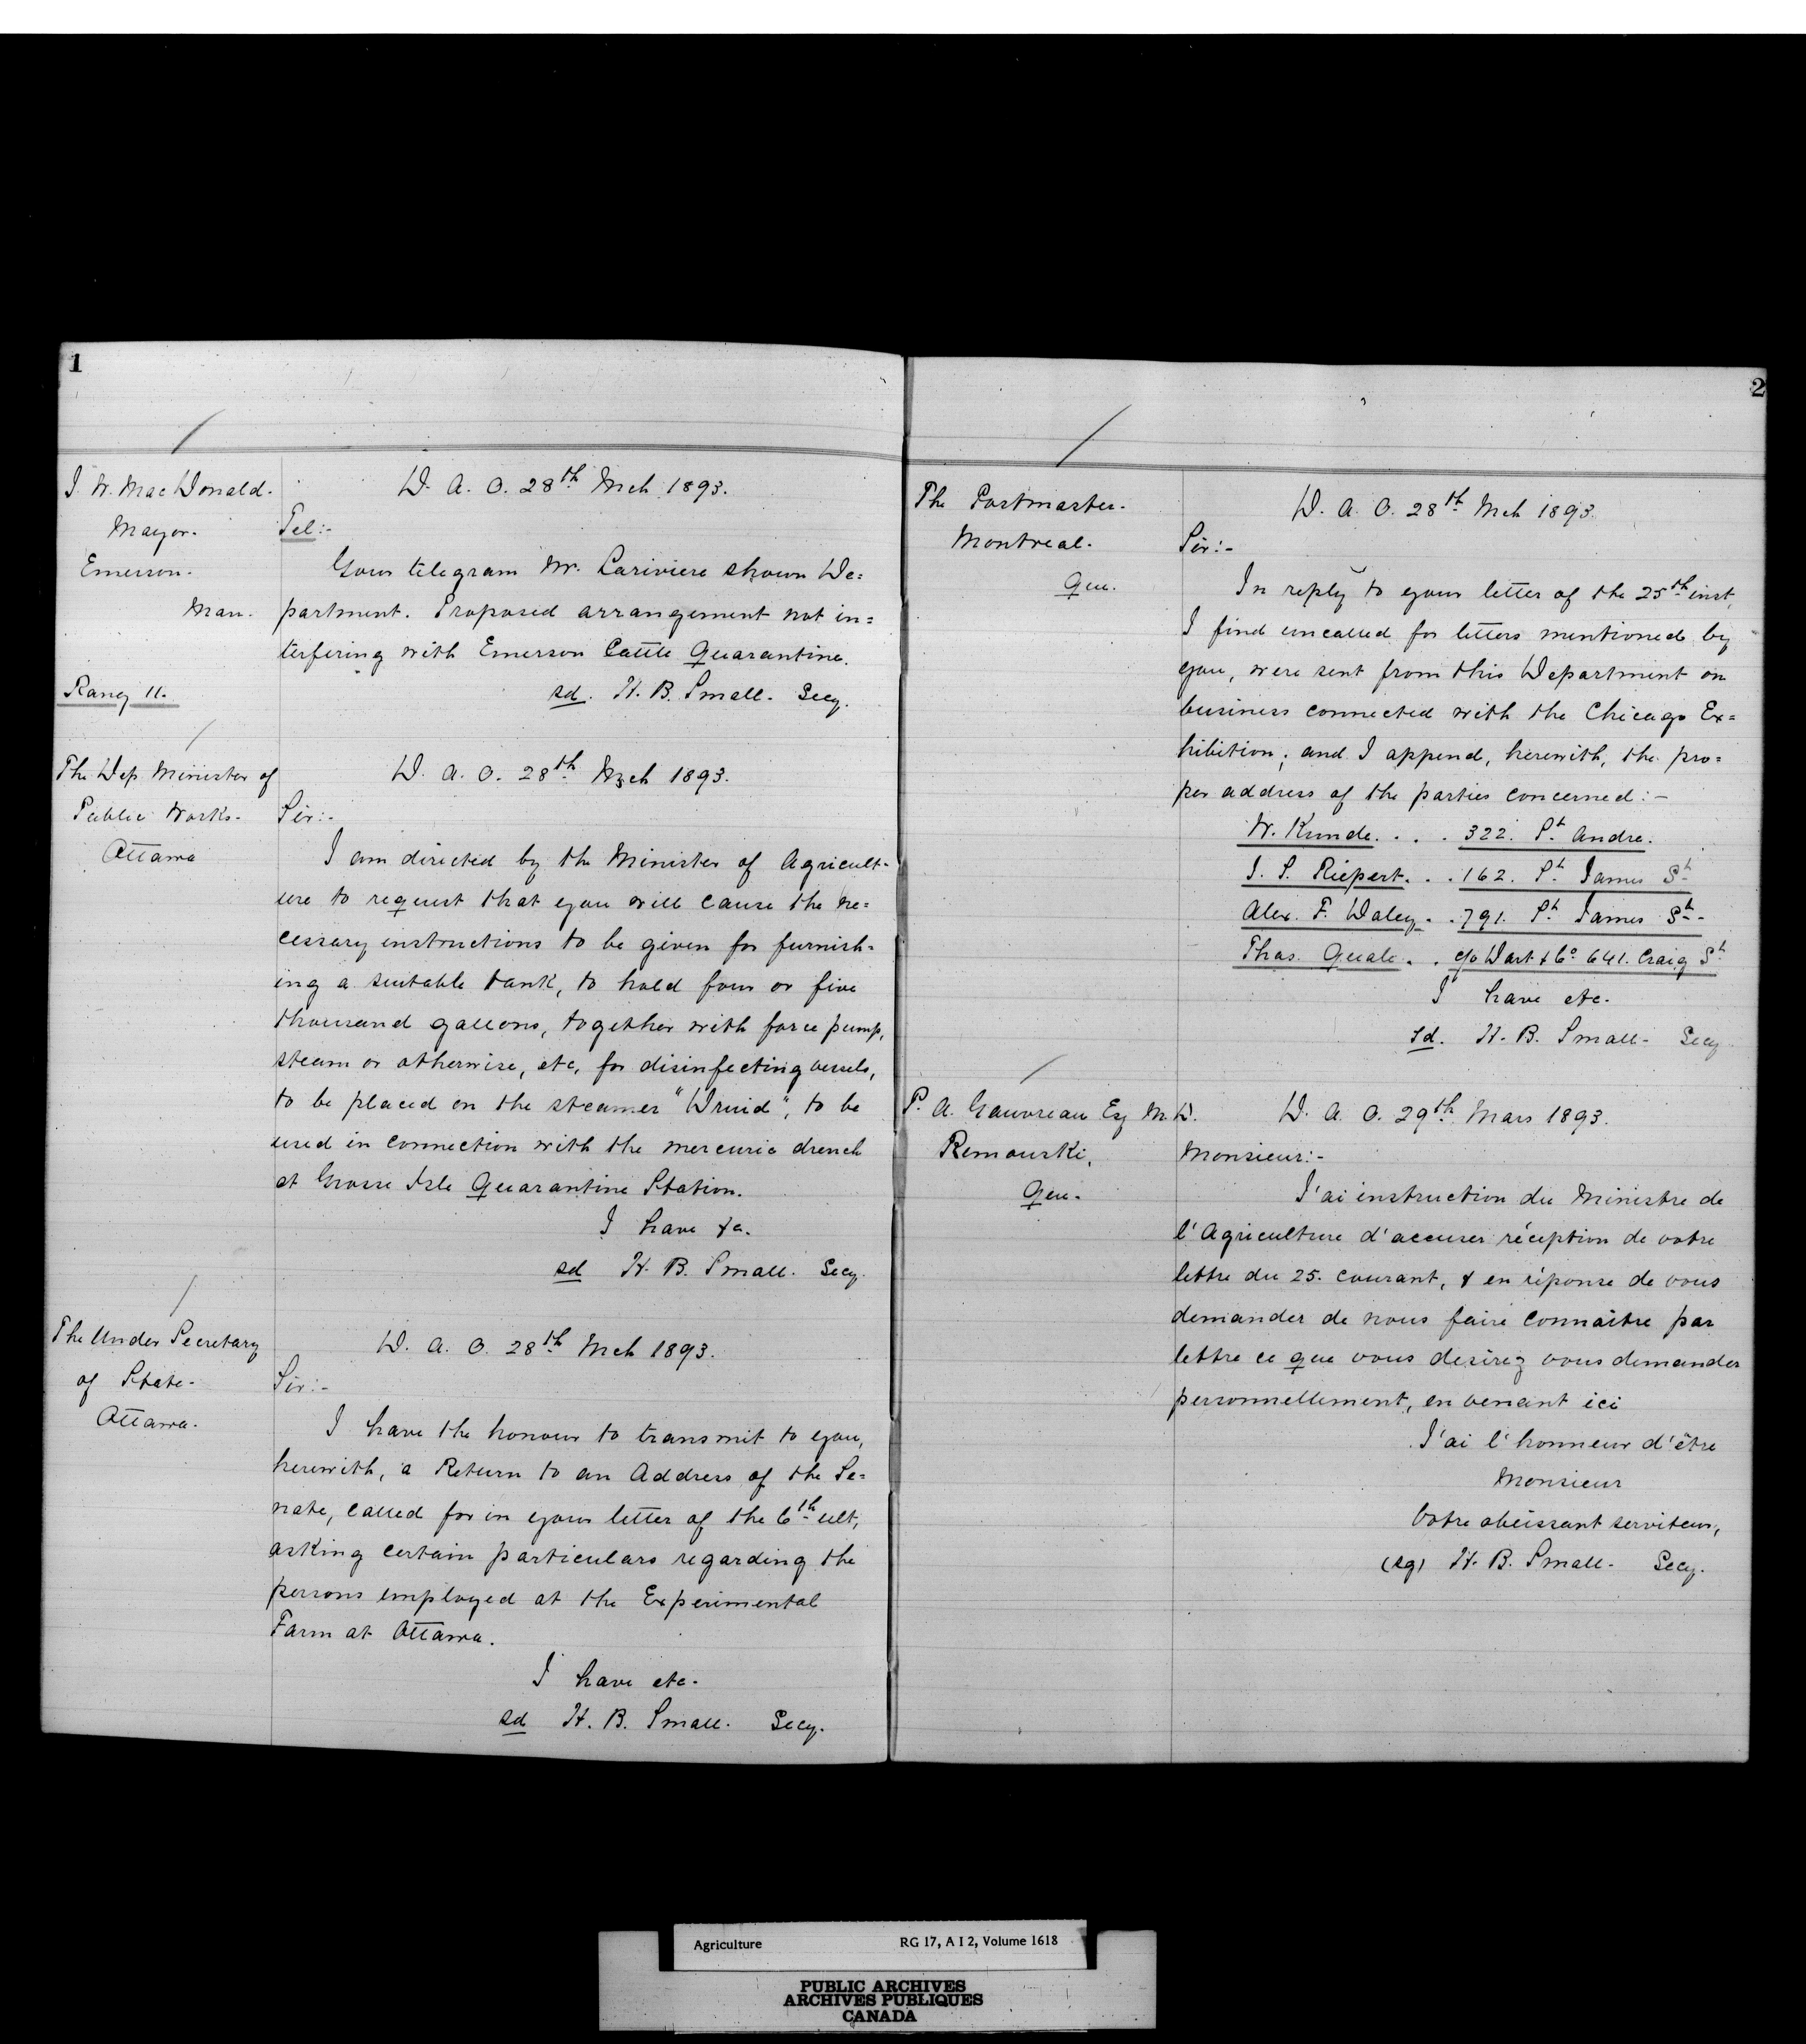 1
J. W. MacDonald.
Mayor.
Emerson.
Man.
D. A. O. 28th Mch 1893.
Tel:-
Your telegram Mr. Lariviere shown De=
partment. Proposed arrangement not in=
terfering with Emerson Cattle Quarantine.
sd. H. B. Small. Secy.
The Dep. Minister of
Public Works.
Ottawa
D. A. O. 28th Mch 1893.
Sir:-
I am directed by the Minister of Agricult-
ure to request that you will cause the ne=
cessary instructions to be given for furnish-
ing a suitable tank, to hold four or five
thousand gallons, together with force pump,
steam or otherwise, etc, for disinfecting vessels,
to be placed on the steamer "Druid", to be
used in connection with the mercuric drench
at Grosse Isle Quarantine Station.
I have &c.
sd H. B. Small. Secy.
The Under Secretary
of State-
Ottawa.
D. A. O. 28th Mch 1893.
Sir:-
I have the honour to transmit to you,
herewith, a Return to an Address of the Se=
nate, called for in your letter of the 6th ult,
asking certain particulars regarding the
persons employed at the Experimental
Farm at Ottawa.
I have etc.
sd H. B. Small. Secy.
2
The Postmaster.
Montreal.
Que.
D. A. O. 28th Mch 1893.
Sir:-
In reply to your letter of the 25th inst,
I find uncalled for letters mentioned by
you, were sent from this Department on
business connected with the Chicago Ex=
hibition; and I append, herewith, the pro=
per address of the parties concerned:-
W. Kunde. . . . 322. St Andre.
J. S. Riepert. . . 162. St James St
Alex. F. Daley. . . 791. St James St.
Thos. Quale. . c/o Dart & Co 641. Craig St
I have etc.
sd. H. B. Small- Secy
P. A. Gauvreau Esq M.D.
Remouski,
Que.
D. A. O. 29th Mars 1893.
Monsieur:-
J'ai instruction du Ministre de
l'Agriculture d'accuser réception de votre
lettre du 25. courant, & en réponse de vous
demander de nous faire connaître par
lettre ce que vous desirez vous demander
personnellement, en venant ici
J'ai l'honneur d'être
Monsieur
Votre obéissant serviteur,
(sg) H. B. Small- Secy.
Agriculture RG 17, A I 2, Volume 1618
PUBLIC ARCHIVES
ARCHIVES PUBLIQUES
CANADA